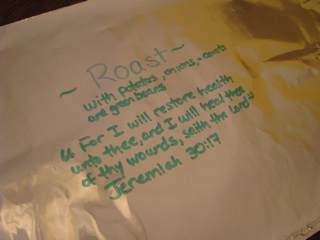 ~ Roast ~
with potatoes, onions, carrots
and green beans
"For I will restore health
unto thee, and I will heal thee
of thy wounds, saith the Lord"
Jeremiah 30:17